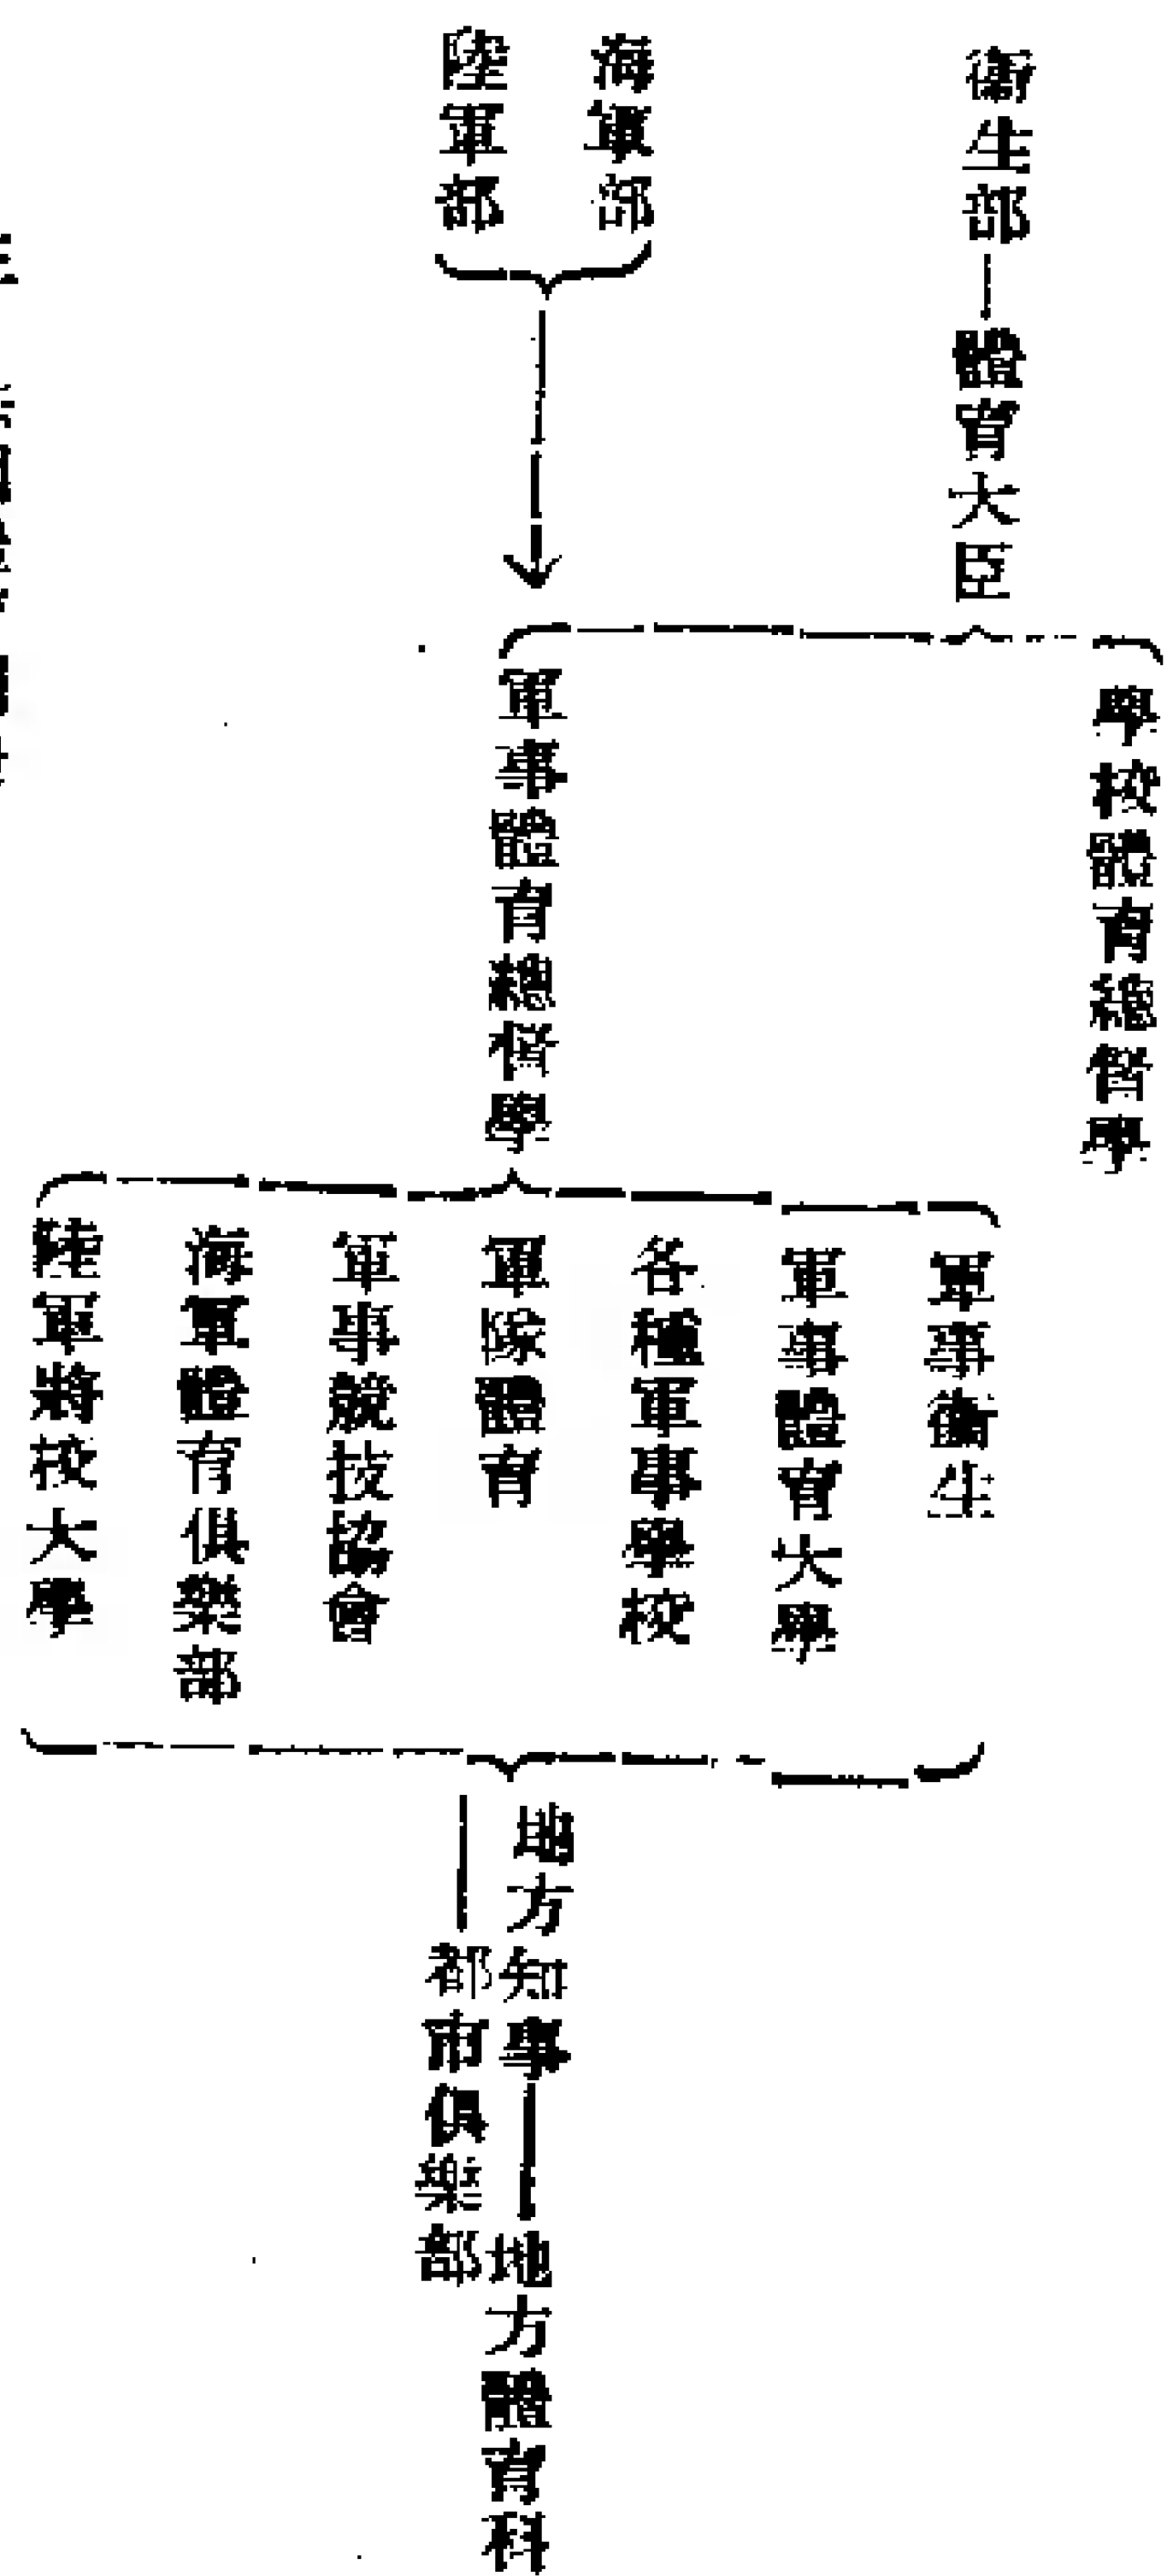 衞生部—體育大臣
學校體育總督學
海軍部
陸軍部
軍事體育總督學
軍事衞生
軍事體育大學
各種軍事學校
軍隊體育
軍事競技協會
海軍體育俱樂部
陸軍將校大學
地方知事——地方體育科
——都市俱樂部